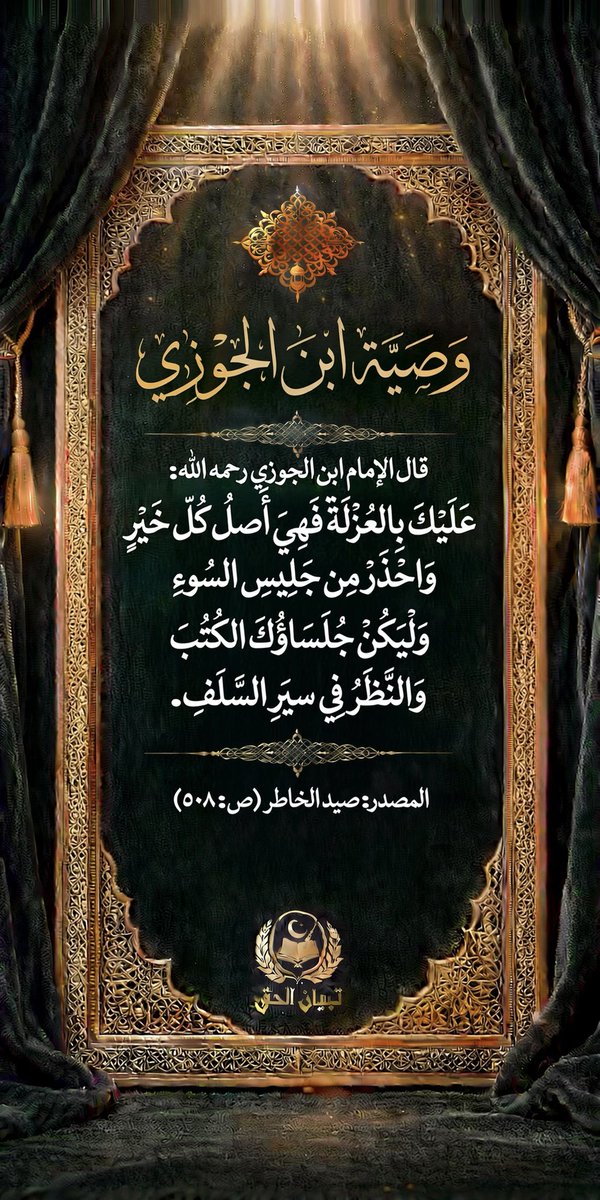 وَصَيَّة ابْنَ الجَوْزِي
قال الإمام ابن الجوزي رحمه الله:
عَلَيْكَ بِالعُزْلَةْ فَهِيَ أَصلُ كُلّ خَيْرٍ
وَاحْذَرْ مِن جَلِيسِ السُوءِ
وَلْيَكُنْ جُلَسَاؤُكَ الكُتُبَ
وَالنَّظَرُ فِي سيَرِ السَّلَفِ.
المصدر: صيد الخاطر (ص: ٥٠٨)
تبيان الحق